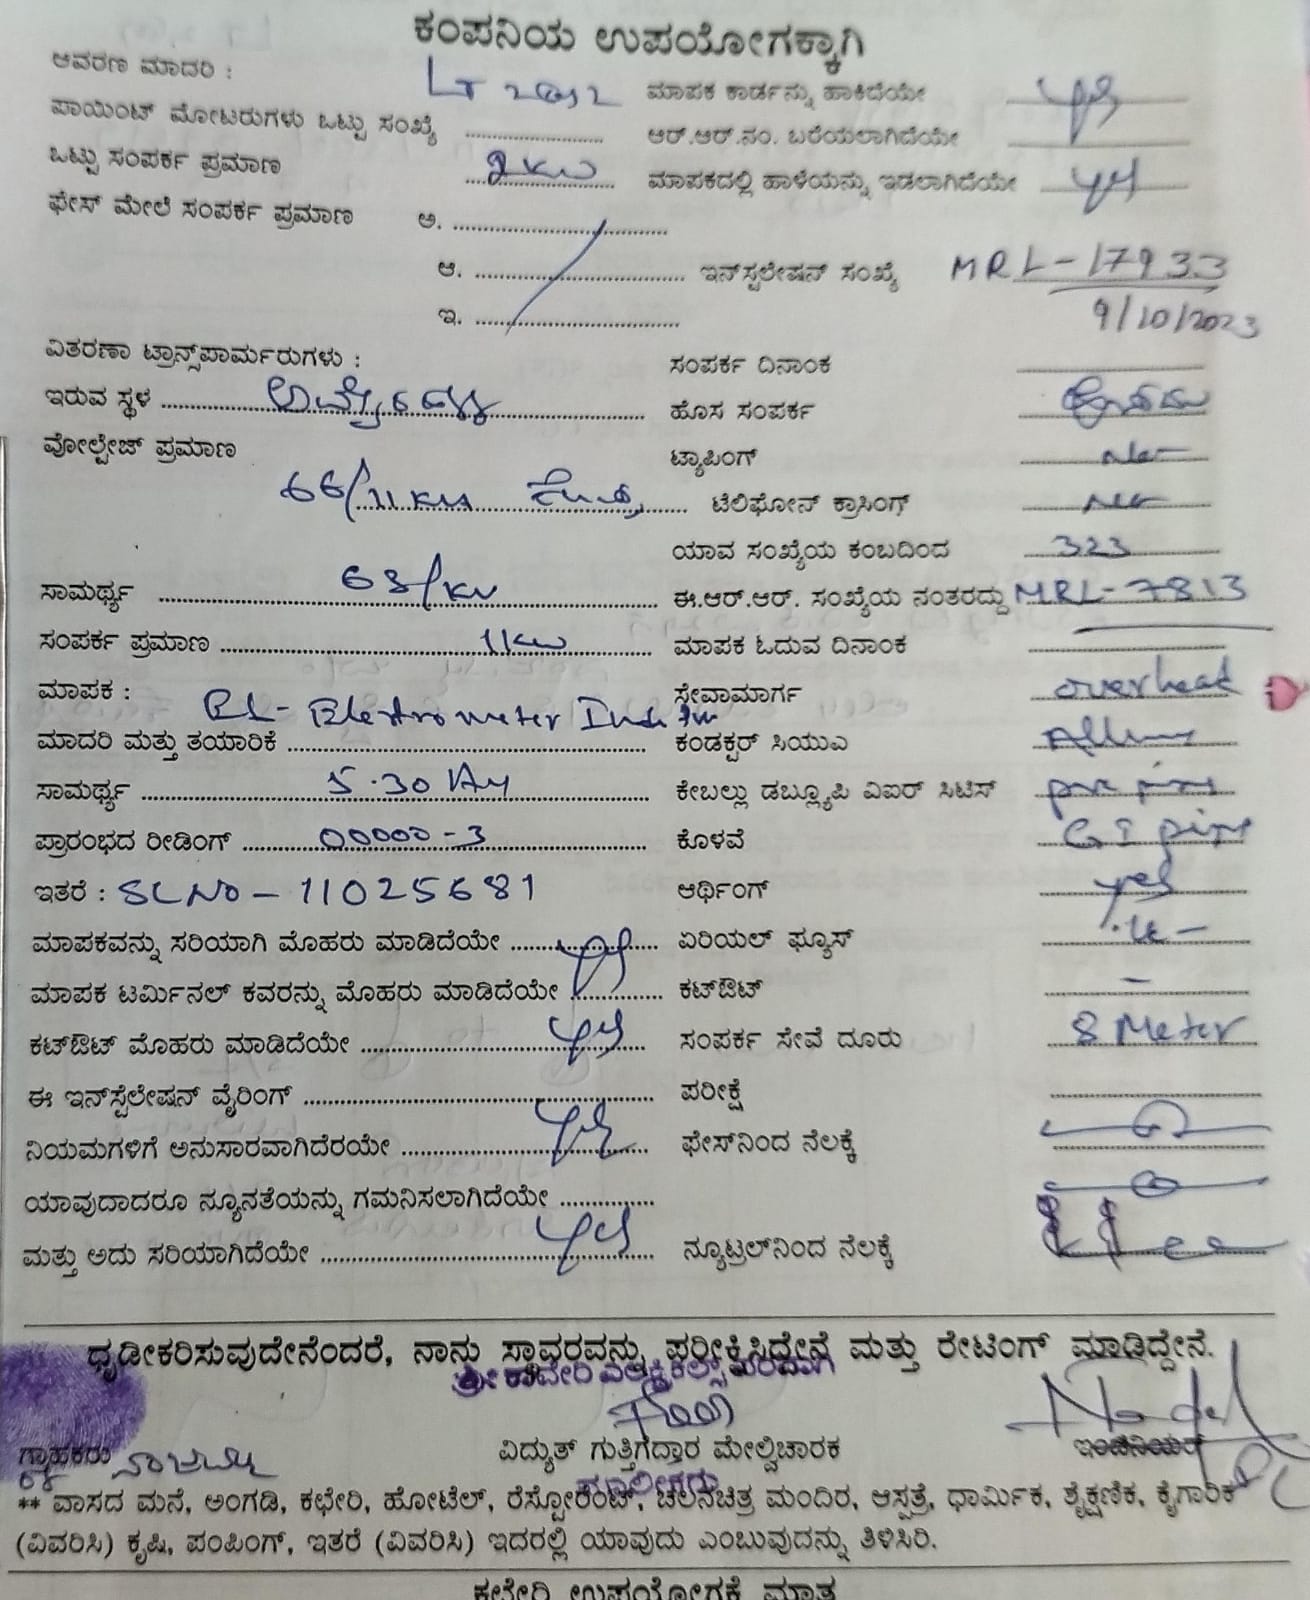 ಕಂಪನಿಯ ಉಪಯೋಗಕ್ಕಾಗಿ
ಆವರಣ ಮಾದರಿ : LT
ಮಾಪಕ ಕಾರ್ಡನ್ನು ಹಾಕಿದೆಯೇ yes
ಪಾಯಿಂಟ್ ಮೋಟರುಗಳು ಒಟ್ಟು ಸಂಖ್ಯೆ
ಆರ್.ಆರ್.ನಂ. ಬರೆಯಲಾಗಿದೆಯೇ
ಒಟ್ಟು ಸಂಪರ್ಕ ಪ್ರಮಾಣ
ಮಾಪಕದಲ್ಲಿ ಹಾಳೆಯನ್ನು ಇಡಲಾಗಿದೆಯೇ yes
ಫೇಸ್ ಮೇಲೆ ಸಂಪರ್ಕ ಪ್ರಮಾಣ ಅ.
ಆ. ಇನ್‌ಸ್ಟಲೇಷನ್ ಸಂಖ್ಯೆ MRL-17933
ಇ. 9/10/2023
ವಿತರಣಾ ಟ್ರಾನ್ಸ್‌ಪಾರ್ಮರುಗಳು :
ಸಂಪರ್ಕ ದಿನಾಂಕ
ಇರುವ ಸ್ಥಳ
ಹೊಸ ಸಂಪರ್ಕ
ವೋಲ್ಟೇಜ್ ಪ್ರಮಾಣ
ಟ್ಯಾಪಿಂಗ್
66/11
ಟೆಲಿಫೋನ್ ಕ್ರಾಸಿಂಗ್
ಯಾವ ಸಂಖ್ಯೆಯ ಕಂಬದಿಂದ 323
ಸಾಮರ್ಥ್ಯ
ಈ.ಆರ್.ಆರ್. ಸಂಖ್ಯೆಯ ನಂತರದ್ದು MRL-7813
ಸಂಪರ್ಕ ಪ್ರಮಾಣ
ಮಾಪಕ ಓದುವ ದಿನಾಂಕ
ಮಾಪಕ :
ಸೇವಾಮಾರ್ಗ overhead
ಮಾದರಿ ಮತ್ತು ತಯಾರಿಕೆ
ಕಂಡಕ್ಟರ್ ಸಿಯುಎ
ಸಾಮರ್ಥ್ಯ 5.30
ಕೇಬಲ್ಲು ಡಬ್ಲ್ಯೂಪಿ ವಿಐರ್ ಸಿಟಿಸ್ pvc
ಪ್ರಾರಂಭದ ರೀಡಿಂಗ್ 00000-3
ಕೊಳವೆ G I pipe
ಇತರೆ : SLNO - 11025681
ಆರ್ಥಿಂಗ್ yes
ಮಾಪಕವನ್ನು ಸರಿಯಾಗಿ ಮೊಹರು ಮಾಡಿದೆಯೇ yes
ಏರಿಯಲ್ ಫ್ಯೂಸ್
ಮಾಪಕ ಟರ್ಮಿನಲ್ ಕವರನ್ನು ಮೊಹರು ಮಾಡಿದೆಯೇ
ಕಟ್‌ಔಟ್ -
ಕಟ್‌ಔಟ್ ಮೊಹರು ಮಾಡಿದೆಯೇ yes
ಸಂಪರ್ಕ ಸೇವೆ ದೂರು 8 Meter
ಈ ಇನ್‌ಸ್ಟೆಲೇಷನ್ ವೈರಿಂಗ್
ಪರೀಕ್ಷೆ
ನಿಯಮಗಳಿಗೆ ಅನುಸಾರವಾಗಿದೆರಯೇ yes
ಫೇಸ್‌ನಿಂದ ನೆಲಕ್ಕೆ
ಯಾವುದಾದರೂ ನ್ಯೂನತೆಯನ್ನು ಗಮನಿಸಲಾಗಿದೆಯೇ
ಮತ್ತು ಅದು ಸರಿಯಾಗಿದೆಯೇ yes
ನ್ಯೂಟ್ರಲ್‌ನಿಂದ ನೆಲಕ್ಕೆ
ಧೃಡೀಕರಿಸುವುದೇನೆಂದರೆ, ನಾನು ಸ್ಥಾವರವನ್ನು ಪರೀಕ್ಷಿಸಿದ್ದೇನೆ ಮತ್ತು ರೇಟಿಂಗ್ ಮಾಡಿದ್ದೇನೆ.
ಗ್ರಾಹಕರು
ವಿದ್ಯುತ್ ಗುತ್ತಿಗೆದ್ದಾರ ಮೇಲ್ವಿಚಾರಕ
ಇಂಜಿನಿಯರ್
ಮಾಲೀಕರು
** ವಾಸದ ಮನೆ, ಅಂಗಡಿ, ಕಛೇರಿ, ಹೋಟೆಲ್, ರೆಸ್ಟೋರೆಂಟ್, ಚಲನಚಿತ್ರ ಮಂದಿರ, ಆಸ್ಪತ್ರೆ, ಧಾರ್ಮಿಕ, ಶೈಕ್ಷಣಿಕ, ಕೈಗಾರಿಕ
(ವಿವರಿಸಿ) ಕೃಷಿ, ಪಂಪಿಂಗ್, ಇತರೆ (ವಿವರಿಸಿ) ಇದರಲ್ಲಿ ಯಾವುದು ಎಂಬುವುದನ್ನು ತಿಳಿಸಿರಿ.
ಕಛೇರಿ ಉಪಯೋಗಕೆ ಮಾತ್ರ